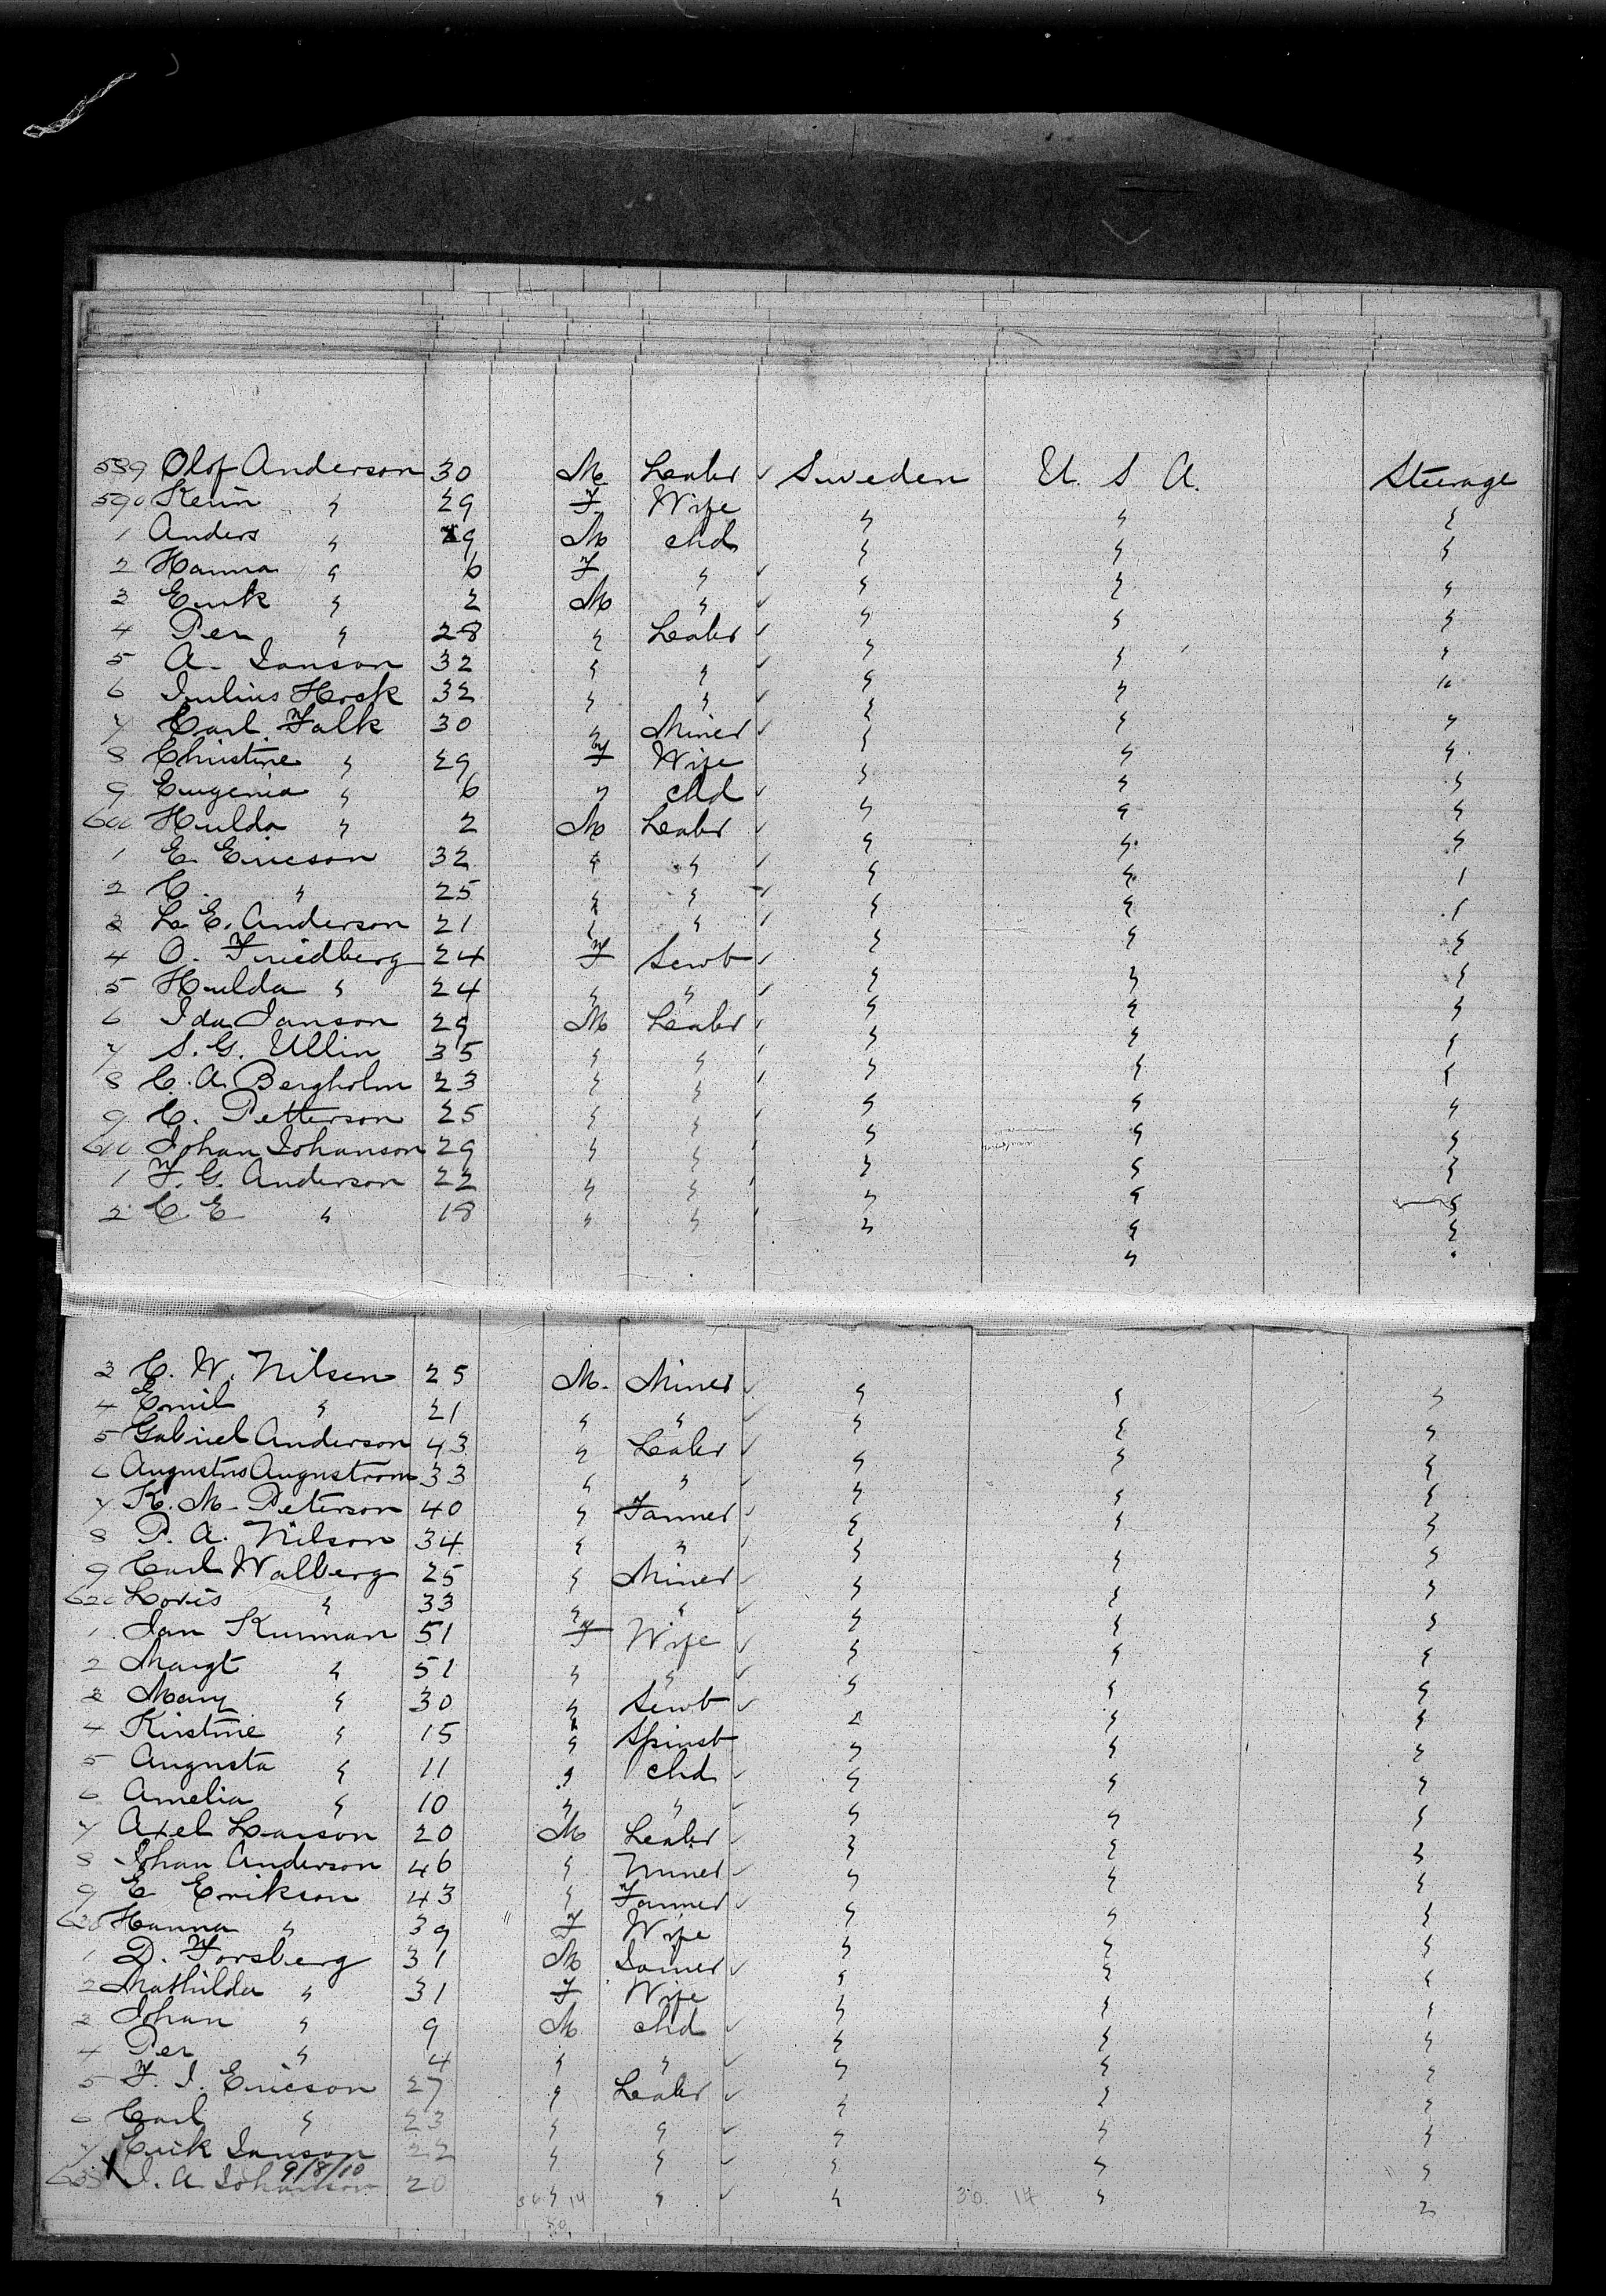 589 Olof Anderson 30 M. Labr ✓ Sweden U. S. A. Steerage
590 Kerin " 29 F Wife " " "
1 Anders " 9 M chd " " "
2 Hanna " 6 F " ✓ " " "
3 Erik " 2 M " ✓ " " "
4 Per " 28 " Labr ✓ " " "
5 A. Janson 32 " " ✓ " " "
6 Julius Hock 32 " " ✓ " " "
7 Carl Falk 30 " Miner ✓ " " "
8 Christine " 29 F Wife " " "
9 Eugenia " 6 " chd ✓ " " "
600 Hulda " 2 M Labr ✓ " " "
1 E. Ericson 32 " " ✓ " " "
2 C. " 25 " " ✓ " " "
3 L. E. Anderson 21 " " ✓ " " "
4 O. Friedberg 24 F Servt ✓ " " "
5 Hulda " 24 " " ✓ " " "
6 Ida Janson 29 M Labr ✓ " " "
7 S. G. Ullin 35 " " ✓ " " "
8 C. A. Bergholm 23 " " ✓ " " "
9 C. Petterson 25 " " ✓ " " "
610 Johan Johanson 29 " " ✓ " " "
1 F. G. Anderson 22 " " ✓ " " "
2 C E " 18 " " ✓ " " "
3 C. W. Nilsen 25 M. Miner ✓ " " "
4 Emil " 21 " " ✓ " " "
5 Gabriel Anderson 43 " Labr ✓ " " "
6 Augustus Augustrom 33 " " ✓ " " "
7 K. M. Peterson 40 " Farmer ✓ " " "
8 P. A. Nilson 34 " " ✓ " " "
9 Carl Walberg 25 " Miner ✓ " " "
620 Lovis " 33 " " ✓ " " "
1 Jan Kurman 51 F Wife ✓ " " "
2 Margt " 51 " " ✓ " " "
3 Mary " 30 " Servt ✓ " " "
4 Kirstine " 15 " Spinst " " "
5 Augusta " 11 " chd ✓ " " "
6 Amelia " 10 " " ✓ " " "
7 Axel Larson 20 M Labr ✓ " " "
8 Johan Anderson 46 " Miner ✓ " " "
9 E Erikson 43 " Farmer ✓ " " "
630 Hanna " 39 " F Wife " " "
1 D. Forsberg 31 M Joiner ✓ " " "
2 Mathilda " 31 F Wife " " "
3 Johan " 9 M chd ✓ " " "
4 Per " 4 " " ✓ " " "
5 F. J. Ericson 27 " Labr ✓ " " "
6 Carl " 23 " " ✓ " " "
7 Erick Janson 22 " " ✓ " " "
9/8/10
638 X J. A. Johanson 20 " " ✓ " " "
30 14 30. 14